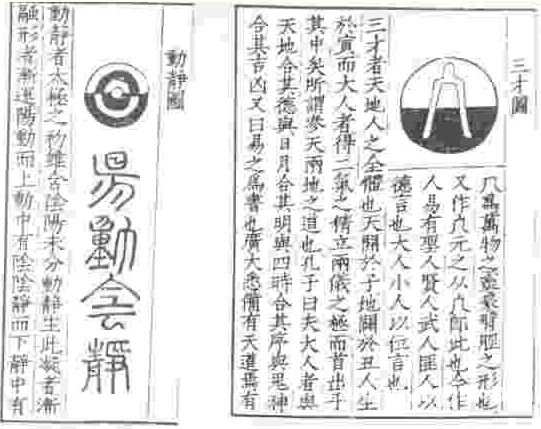 三才圖
几為萬物之靈象臂脛之形也
又作儿元之从儿即此也今作
人易有聖人賢人武人匪人以
德言也大人小人以位言也
三才者天地人之全體也天開於子地闢於丑人生
於寅而大人者得二氣之精立兩儀之極而首出乎
其中矣所謂參天兩地之道也孔子曰夫大人者與
天地合其德與日月合其明與四時合其序與鬼神
合其吉凶又曰易之為書也廣大悉備有天道焉有
動靜圖
昜動侌靜
動靜者太極之初雖含陰陽未分動靜生此凝者漸
融形者漸運陽動而上動中有陰陰靜而下靜中有